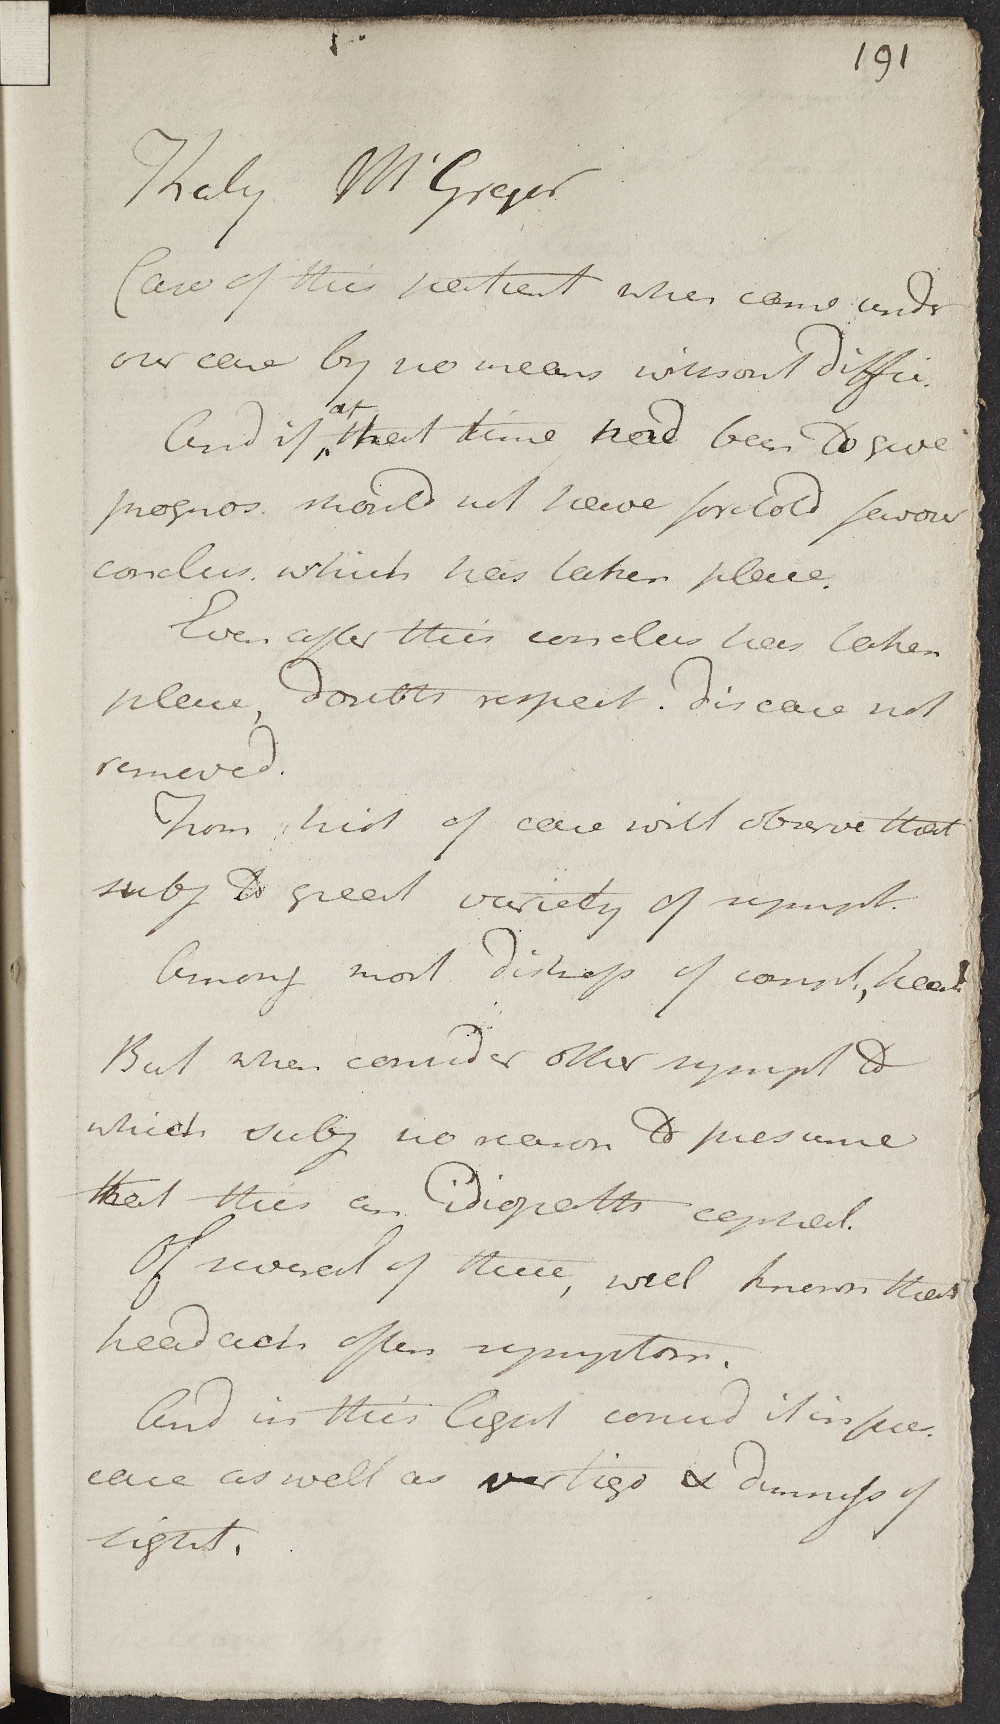 191
Katy McGregor
Case of this patient when came under
our care by no means without diffic.
And if at that time had been to give
prognos. should not have foretold favour
conclus. which has taken place.
Even after this conclus has taken
place, doubts respect. disease not
removed.
From hist of case will observe that
subj to great variety of sympt.
Among most distress of compl, head
But when consider other sympt to
which subj no reason to presume
that this an Idiopath cephal.
Of several of these, well known that
headach often symptom.
And in this light consid it in pres.
case as well as vertigo & dimness of
sight.